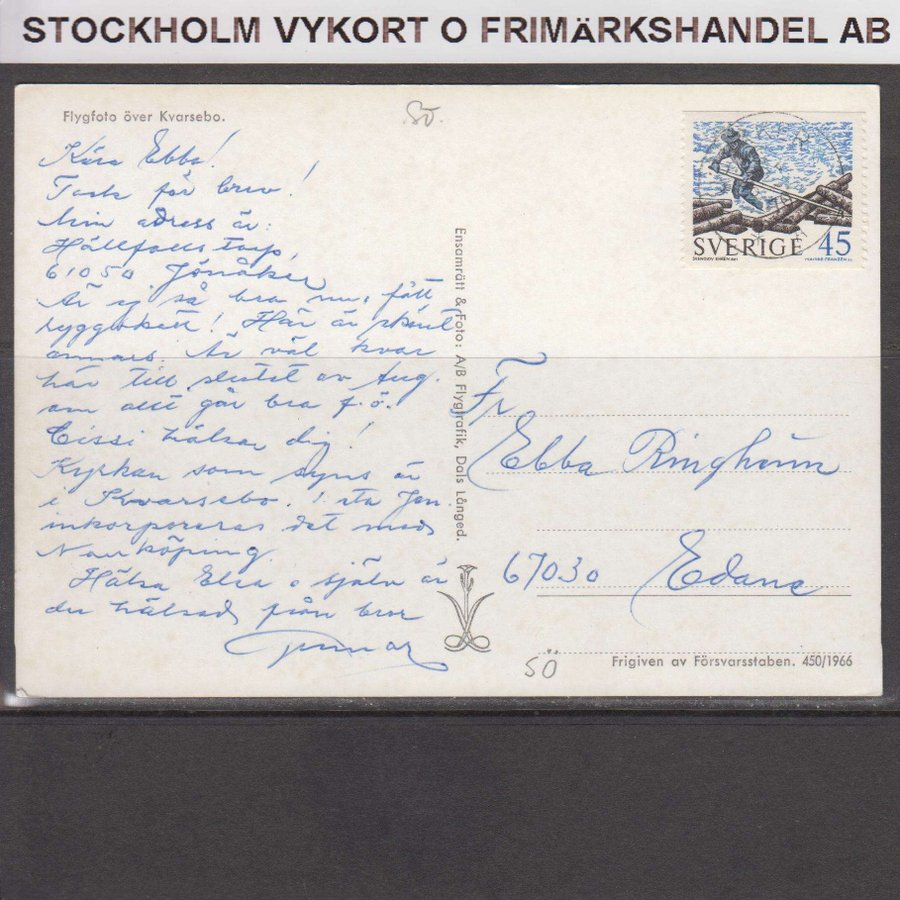 STOCKHOLM VYKORT O FRIMÄRKSHANDEL AB
Flygfoto över Kvarsebo.
SÖ.
Kära Ebba!
Tack för brev!
Min adress är:
Hällfallstorp,
61050 Jönåker
Är ej så bra nu, fått
ryggskott! Här är skönt
annars. Är väl kvar
här till slutet av Aug.
om allt går bra f.ö.
Cissi hälsar dig!
Kyrkan som syns är
i Kvarsebo. 1 sta Jan.
inkorporeras det med
Norrköping
Hälsa Elsa o själv är
du hälsad från bror
Gunnar
Ensamrätt & Foto: A/B Flygtrafik, Dals Långed.
SVERIGE 45
Fr
Ebba Ringholm
67030 Edane
SÖ
Frigiven av Försvarsstaben. 450/1966